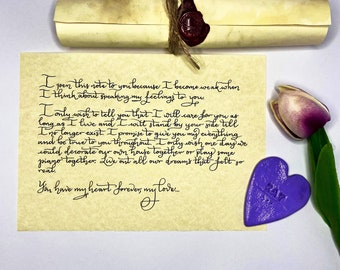 I pen this note to you because I become weak when
I think about speaking my feelings to you.
I only wish to tell you that I will care for you as
long as I live and I will stand by your side till
I no longer exist. I promise to give you my everything
and be true to you throughout. I only wish one day we
could decorate our own house together or play some
piano together. Live out all our dreams that felt so
real.
You have my heart forever, my love...